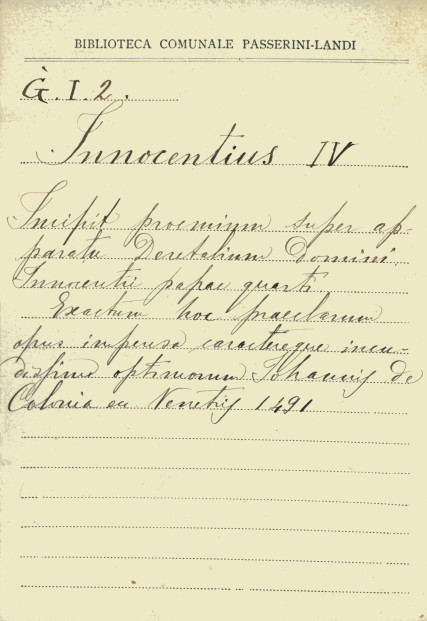 BIBLIOTECA COMUNALE PASSERINI-LANDI
G̀. I. 2.
Innocentius IV
Incipit proemium super ap-
paratu Decretalium Domini
Innocentii papae quarti
Exactum hoc praeclarum
opus impensa caractereque iucu-
dissime optimorum Johannis de
Colonia Venetiis 1491